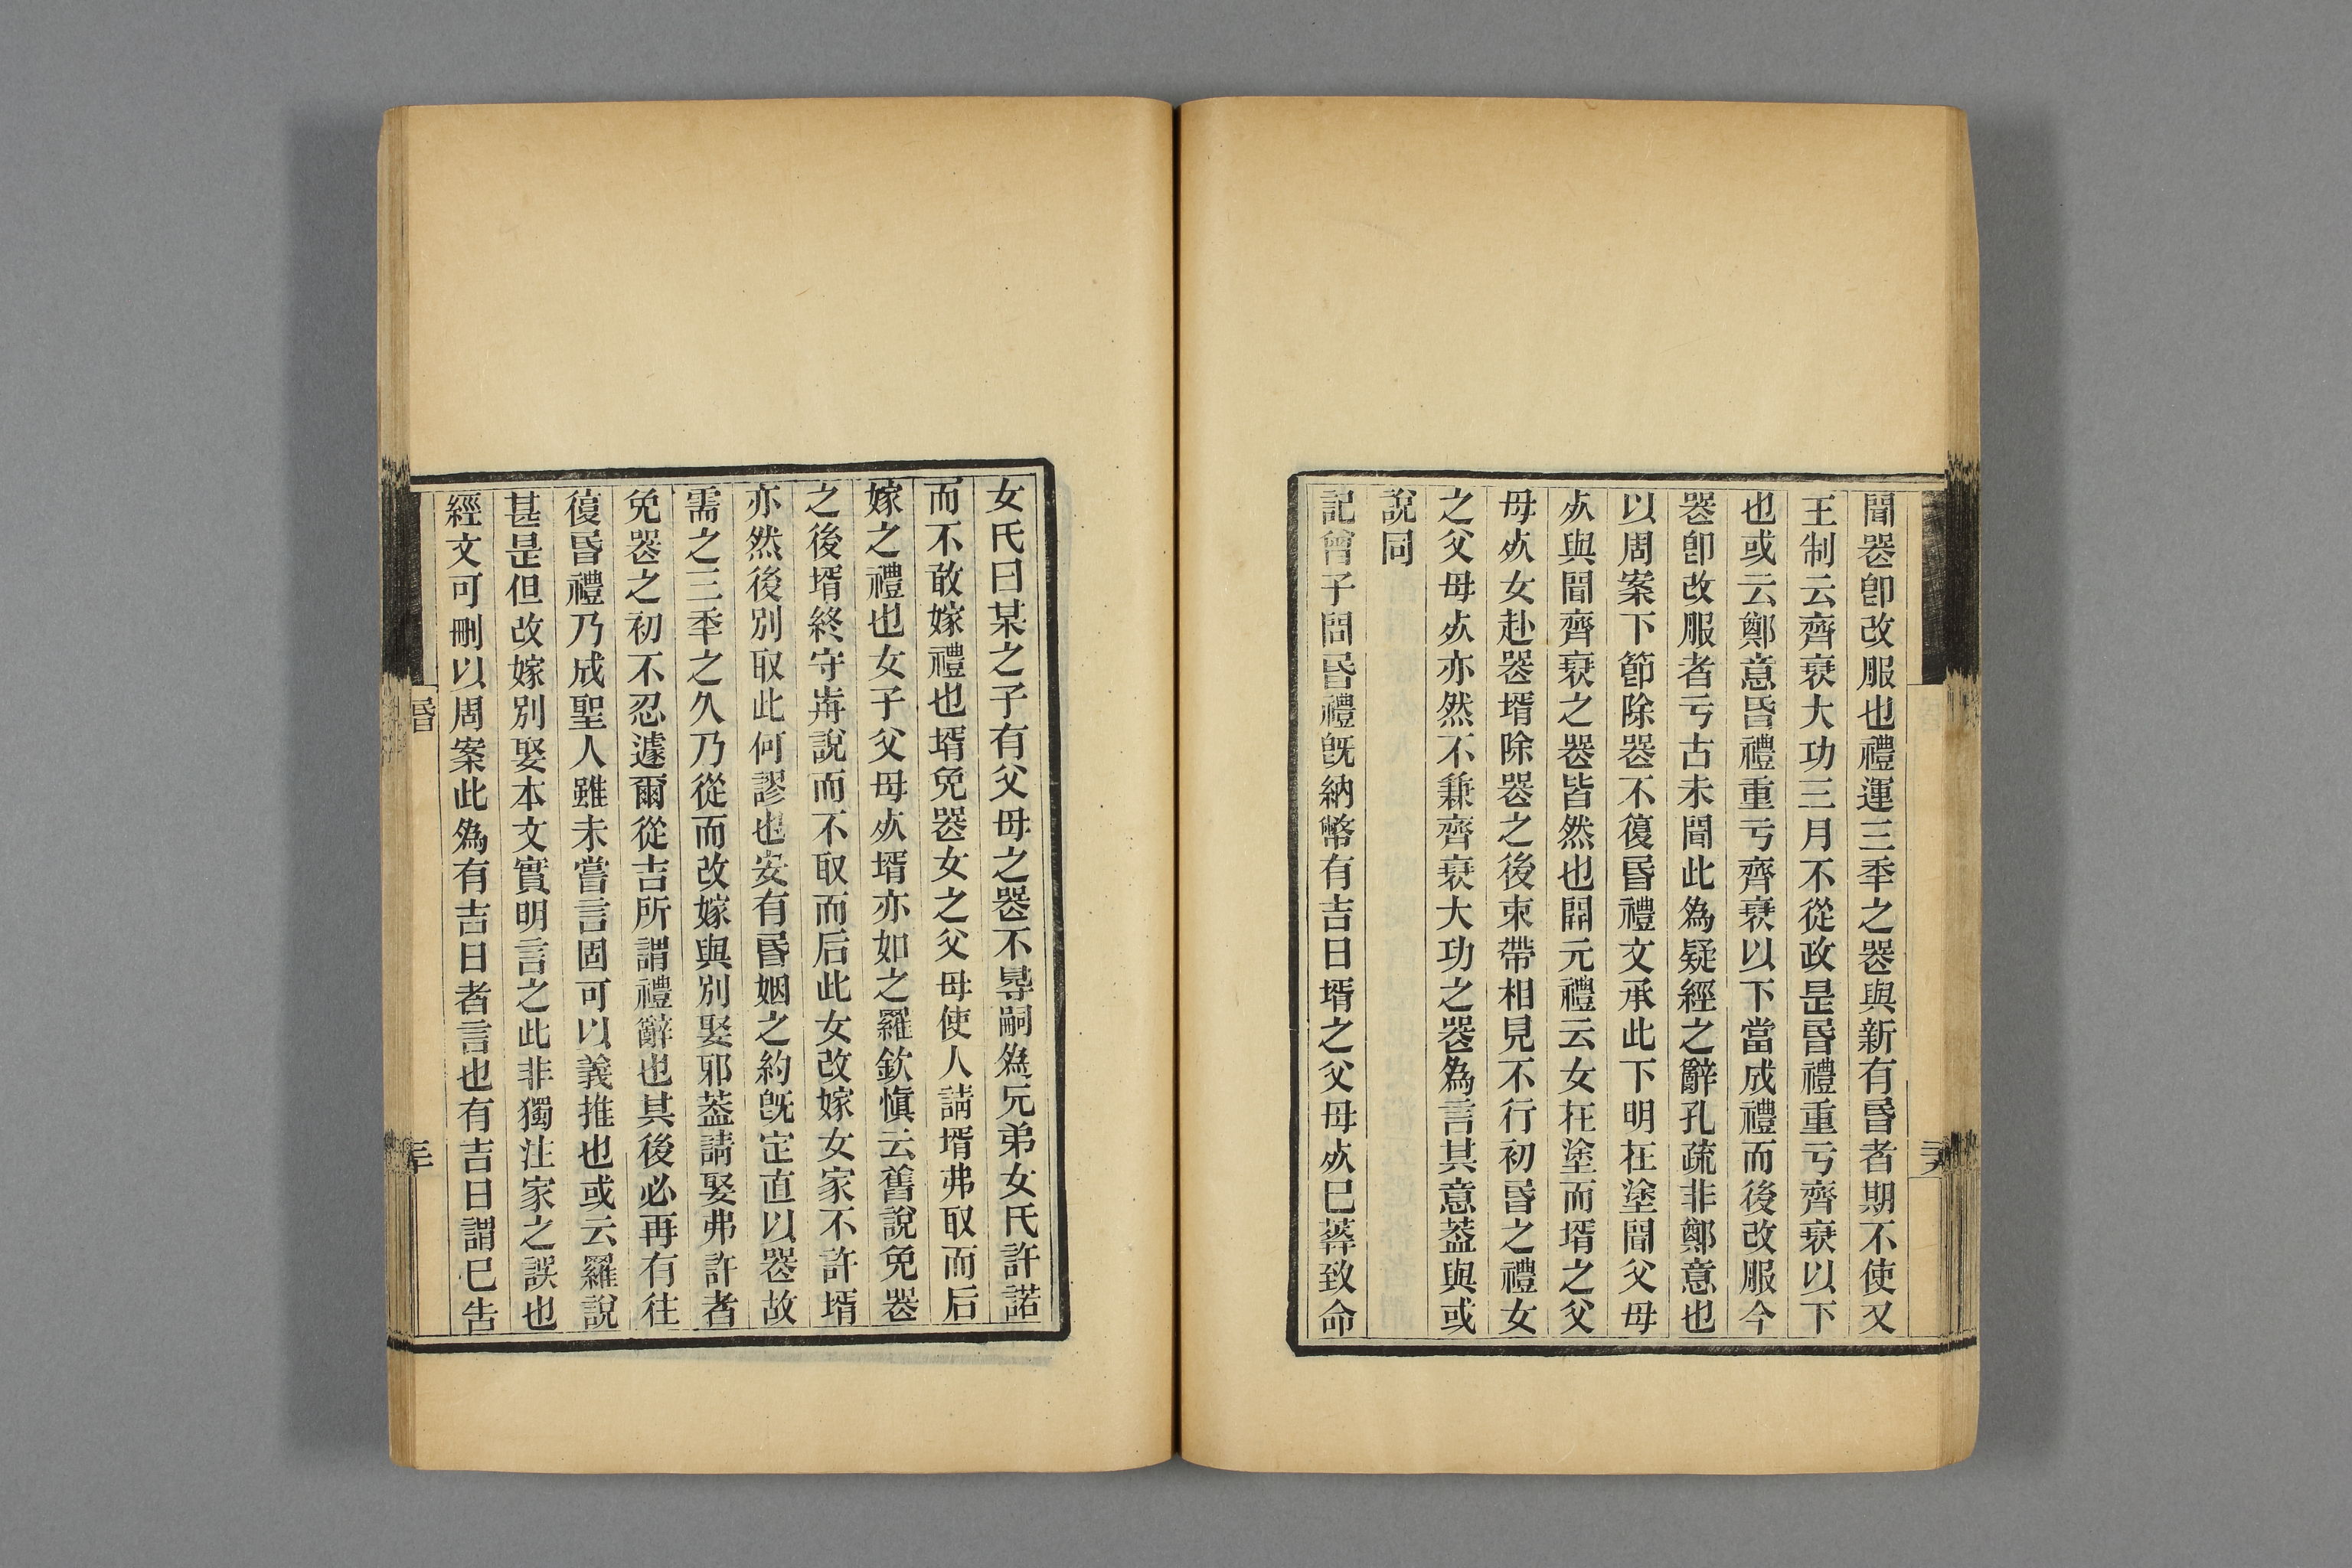 聞喪卽改服也禮運三秊之喪與新有昬者期不使又
王制云齊衰大功三月不從政是昬禮重亏齊衰以下
也或云鄭意昬禮重亏齊衰以下當成禮而後改服今
喪卽改服者亏古未聞此爲疑經之辭孔疏非鄭意也
以周案下節除喪不復昬禮文承此下明在塗聞父母
死與聞齊衰之喪皆然也開元禮云女在塗而壻之父
母死女赴喪壻除喪之後束帶相見不行初昬之禮女
之父母死亦然不兼齊衰大功之喪爲言其意葢與或
說同
記曾子問昬禮旣納幣有吉日壻之父母死巳葬致命
女氏曰某之子有父母之喪不㝵嗣爲兄弟女氏許諾
而不敢嫁禮也壻免喪女之父母使人請壻弗取而后
嫁之禮也女子父母死壻亦如之羅欽愼云舊說免喪
之後壻終守歬說而不取而后此女改嫁女家不許壻
亦然後別取此何謬也安有昬姻之約旣定直以喪故
需之三秊之久乃從而改嫁與別娶邪葢請娶弗許者
免喪之初不忍遽爾從吉所謂禮辭也其後必再有往
復昬禮乃成聖人雖未嘗言固可以義推也或云羅說
甚是但改嫁別娶本文實明言之此非獨注家之誤也
經文可刪以周案此爲有吉日者言也有吉日謂巳告
昬